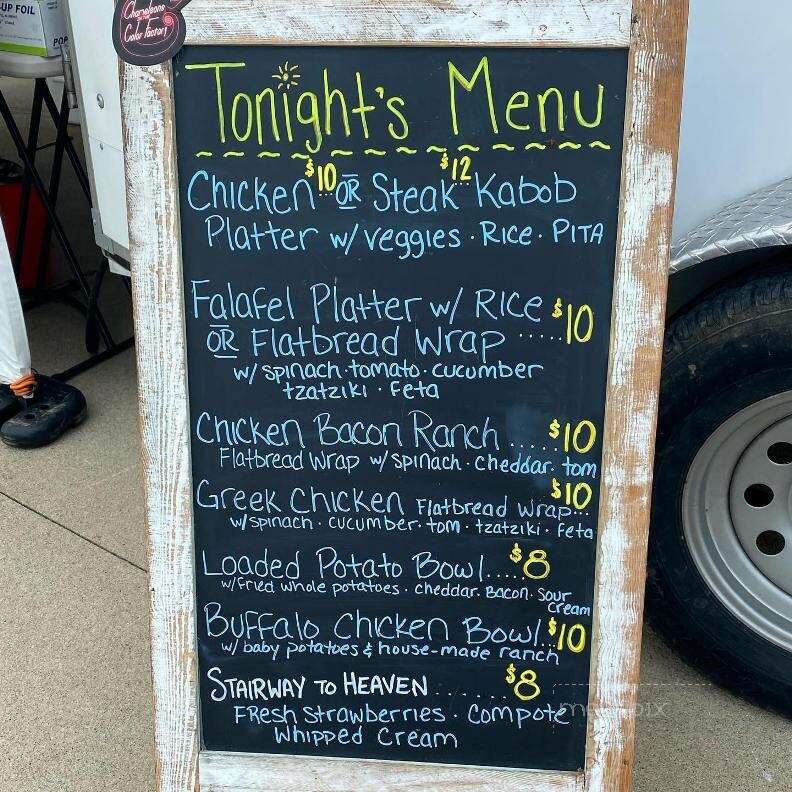 -UP FOIL
POP
Chameleons
Color Factory
Tonight's Menu
$10 $12
Chicken OR Steak Kabob
Platter w/ veggies · Rice · Pita
Falafel Platter w/ Rice $10
OR Flatbread Wrap .....
w/ spinach · tomato · cucumber
tzatziki · Feta
Chicken Bacon Ranch .... $10
Flatbread Wrap w/spinach · cheddar · tom
Greek Chicken Flatbread Wrap... $10
w/spinach · cucumber · tom · tzatziki · Feta
Loaded Potato Bowl..... $8
w/fried whole potatoes · cheddar · Bacon · Sour
Cream
Buffalo Chicken Bowl.. $10
w/ baby potatoes & house-made ranch
Stairway to Heaven ....... $8
Fresh Strawberries · Compote
Whipped Cream